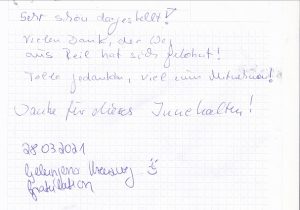 Sehr schön dargestellt!
Vielen Dank, der Weg
aus Zeil hat sich gelohnt!
Tolle Gedanken, viel zum
Danke für dieses Innehalten!
28 03 2021
Gelungene Kreuzweg
Gratulation